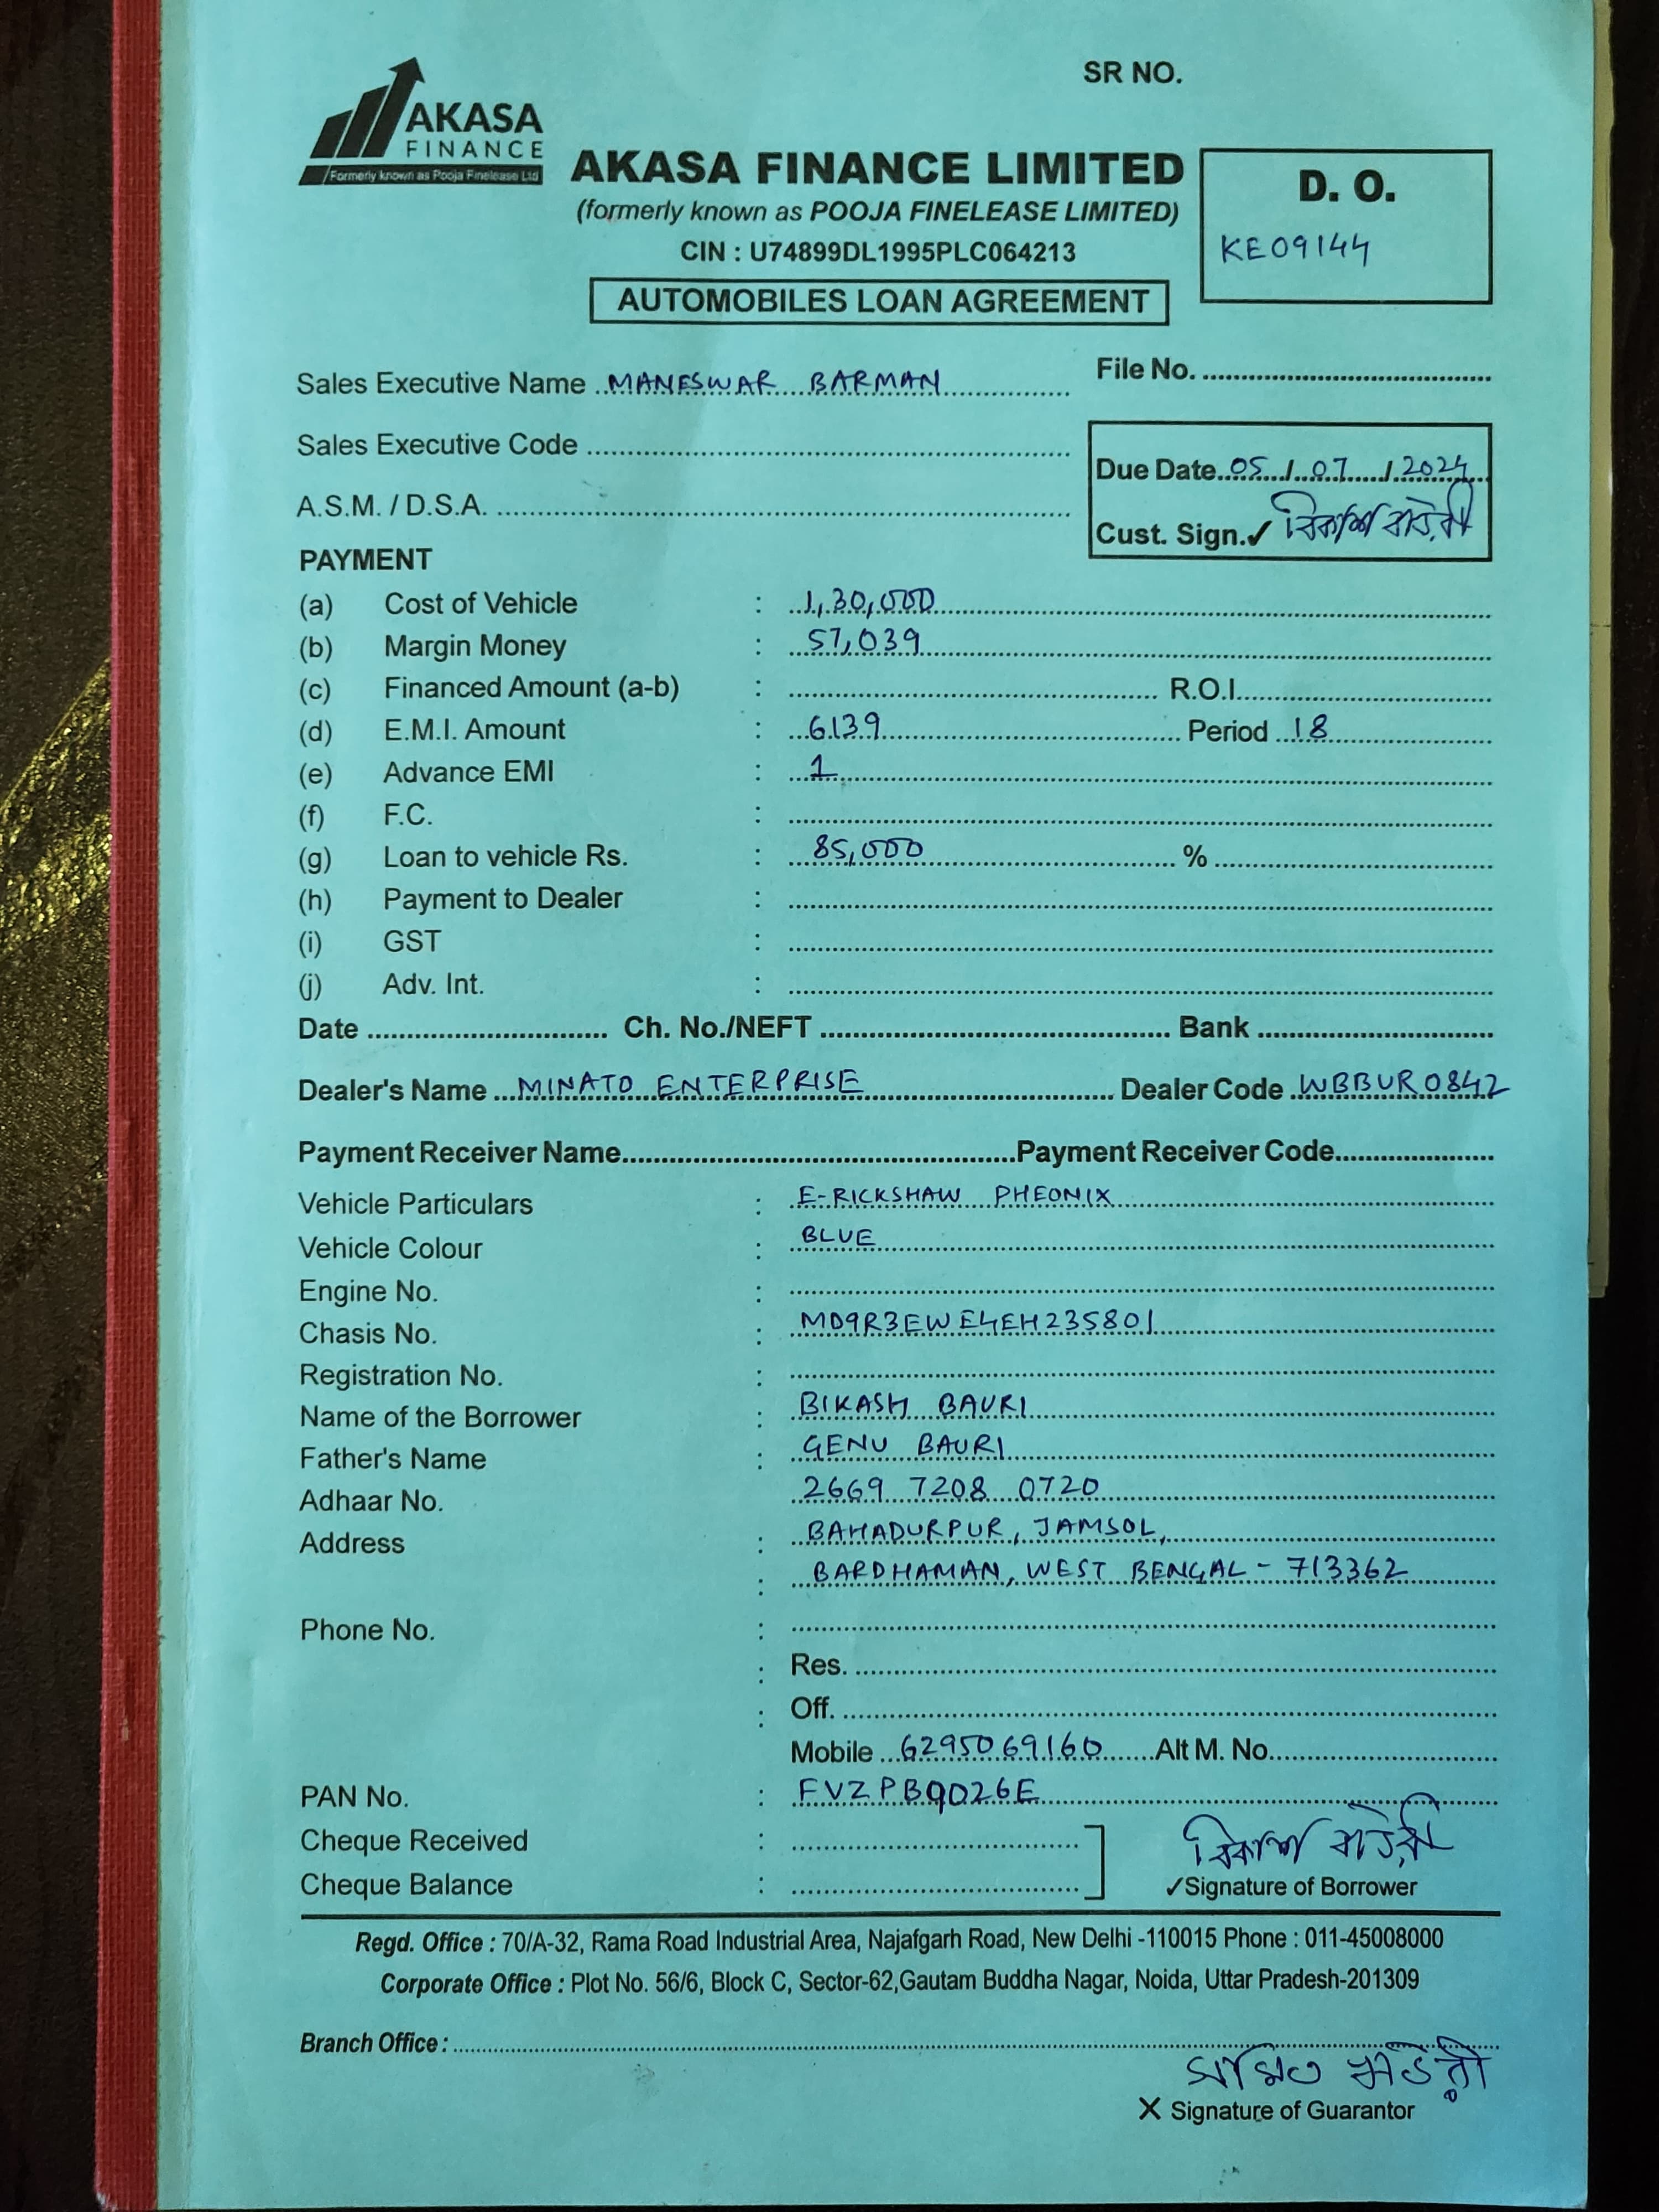 SR NO.
AKASA
FINANCE
Formerly known as Pooja Finelease Ltd
AKASA FINANCE LIMITED
(formerly known as POOJA FINELEASE LIMITED)
CIN : U74899DL1995PLC064213
AUTOMOBILES LOAN AGREEMENT
D. O.
KE09144
Sales Executive Name MANESWAR BARMAN
File No.
Sales Executive Code
Due Date 05/07/2024
A.S.M. / D.S.A.
Cust. Sign.✓ বিকাশ বাউরী
PAYMENT
(a) Cost of Vehicle : 1,30,000
(b) Margin Money : 57,039
(c) Financed Amount (a-b) : R.O.I.
(d) E.M.I. Amount : 6139 Period 18
(e) Advance EMI : 1
(f) F.C. :
(g) Loan to vehicle Rs. : 85,000 %
(h) Payment to Dealer :
(i) GST :
(j) Adv. Int. :
Date Ch. No./NEFT Bank
Dealer's Name MINATO ENTERPRISE Dealer Code WBBUR0842
Payment Receiver Name Payment Receiver Code
Vehicle Particulars : E-RICKSHAW PHEONIX
Vehicle Colour : BLUE
Engine No. :
Chasis No. : MD9R3EWE4EH235801
Registration No. :
Name of the Borrower : BIKASH BAURI
Father's Name : GENU BAURI
Adhaar No. 2669 7208 0720
Address : BAHADURPUR, JAMSOL,
: BARDHAMAN, WEST BENGAL - 713362
Phone No. :
: Res.
: Off.
Mobile 6295069160 Alt M. No.
PAN No. : FVZPB9026E
Cheque Received : বিকাশ বাউরী
Cheque Balance : ✓Signature of Borrower
Regd. Office : 70/A-32, Rama Road Industrial Area, Najafgarh Road, New Delhi -110015 Phone : 011-45008000
Corporate Office : Plot No. 56/6, Block C, Sector-62,Gautam Buddha Nagar, Noida, Uttar Pradesh-201309
Branch Office :
X Signature of Guarantor